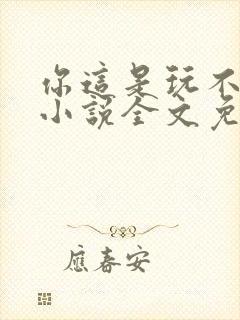 你這是玩不
小說全文免
應春安